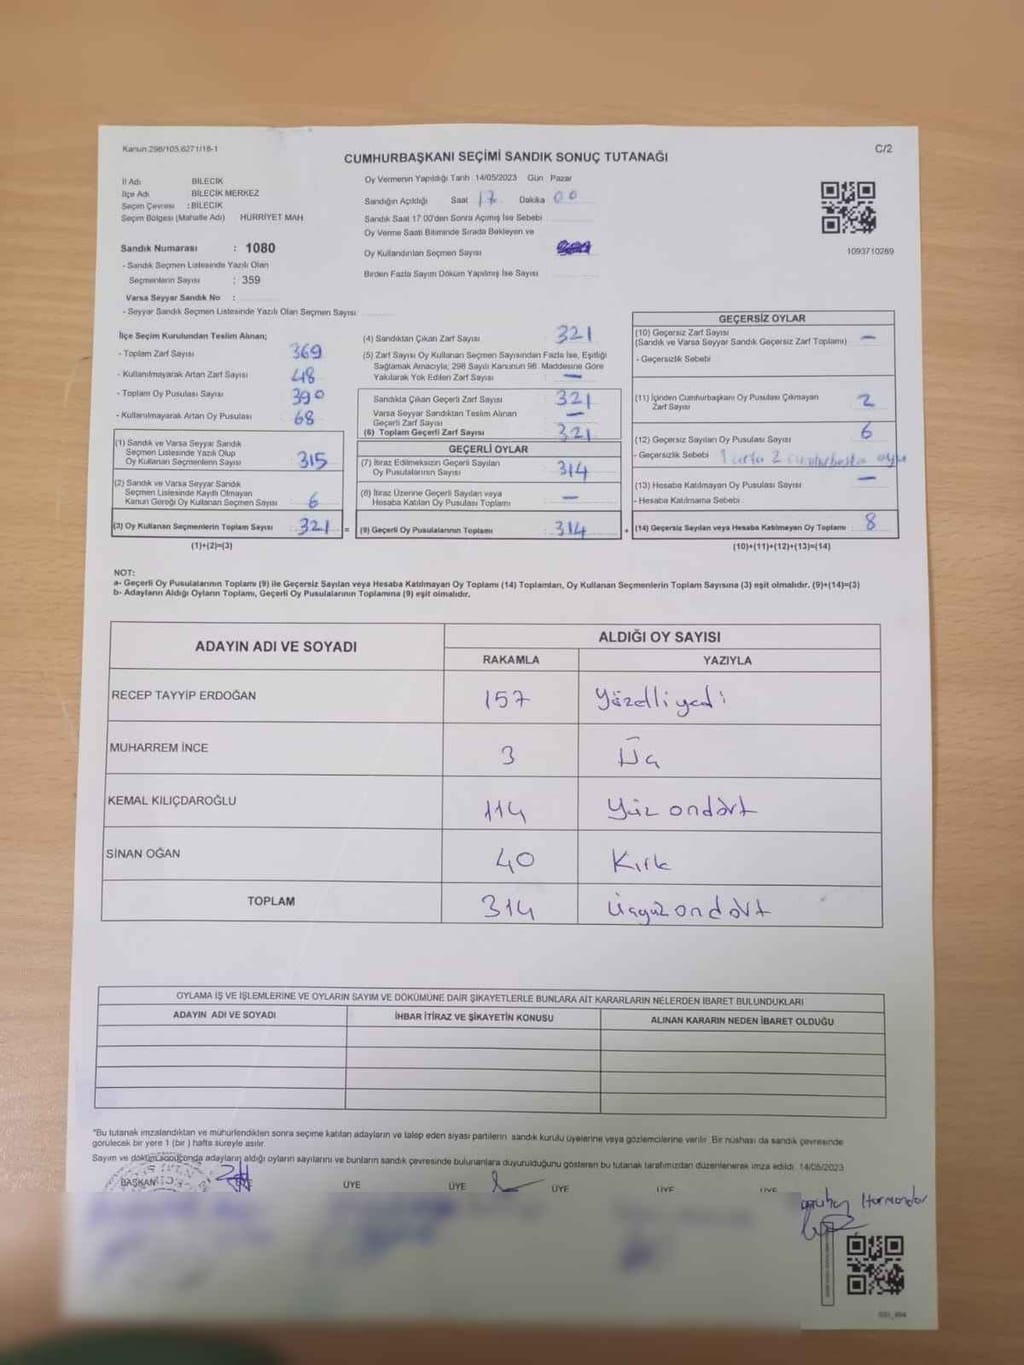 Kanun.298/105,6271/16-1
C/2
CUMHURBAŞKANI SEÇİMİ SANDIK SONUÇ TUTANAĞI
İl Adı BİLECİK
İlçe Adı BİLECİK MERKEZ
Seçim Çevresi : BİLECİK
Seçim Bölgesi (Mahalle Adı) HÜRRİYET MAH
Sandık Numarası : 1080
- Sandık Seçmen Listesinde Yazılı Olan
Seçmenlerin Sayısı : 359
Varsa Seyyar Sandık No :
- Seyyar Sandık Seçmen Listesinde Yazılı Olan Seçmen Sayısı
Oy Vermenin Yapıldığı Tarih 14/05/2023 Gün : Pazar
Sandığın Açıldığı Saat 17 Dakika 00
Sandık Saat 17.00'den Sonra Açılmış İse Sebebi
Oy Verme Saati Bitiminde Sırada Bekleyen ve
Oy Kullandırılan Seçmen Sayısı
Birden Fazla Sayım Döküm Yapılmış İse Sayısı
1093710269
İlçe Seçim Kurulundan Teslim Alınan;
- Toplam Zarf Sayısı 369
- Kullanılmayarak Artan Zarf Sayısı 48
- Toplam Oy Pusulası Sayısı 390
- Kullanılmayarak Artan Oy Pusulası 68
(1) Sandık ve Varsa Seyyar Sandık
Seçmen Listesinde Yazılı Olup
Oy Kullanan Seçmenlerin Sayısı 315
(2) Sandık ve Varsa Seyyar Sandık
Seçmen Listesinde Kayıtlı Olmayan
Kanun Gereği Oy Kullanan Seçmen Sayısı 6
(3) Oy Kullanan Seçmenlerin Toplam Sayısı 321 =
(1)+(2)=(3)
(4) Sandıktan Çıkan Zarf Sayısı 321
(5) Zarf Sayısı Oy Kullanan Seçmen Sayısından Fazla İse, Eşitliği
Sağlamak Amacıyla; 298 Sayılı Kanunun 98. Maddesine Göre
Yakılarak Yok Edilen Zarf Sayısı —
Sandıkta Çıkan Geçerli Zarf Sayısı 321
Varsa Seyyar Sandıktan Teslim Alınan
Geçerli Zarf Sayısı —
(6) Toplam Geçerli Zarf Sayısı 321
GEÇERLİ OYLAR
(7) İtiraz Edilmeksizin Geçerli Sayılan
Oy Pusulalarının Sayısı 314
(8) İtiraz Üzerine Geçerli Sayılan veya
Hesaba Katılan Oy Pusulası Toplamı —
(9) Geçerli Oy Pusulalarının Toplamı 314 +
GEÇERSİZ OYLAR
(10) Geçersiz Zarf Sayısı
(Sandık ve Varsa Seyyar Sandık Geçersiz Zarf Toplamı) —
- Geçersizlik Sebebi
(11) İçinden Cumhurbaşkanı Oy Pusulası Çıkmayan
Zarf Sayısı 2
(12) Geçersiz Sayılan Oy Pusulası Sayısı 6
- Geçersizlik Sebebi 2
(13) Hesaba Katılmayan Oy Pusulası Sayısı —
- Hesaba Katılmama Sebebi
(14) Geçersiz Sayılan veya Hesaba Katılmayan Oy Toplamı 8
(10)+(11)+(12)+(13)=(14)
NOT:
a- Geçerli Oy Pusulalarının Toplamı (9) ile Geçersiz Sayılan veya Hesaba Katılmayan Oy Toplamı (14) Toplamları, Oy Kullanan Seçmenlerin Toplam Sayısına (3) eşit olmalıdır. (9)+(14)=(3)
b- Adayların Aldığı Oyların Toplamı, Geçerli Oy Pusulalarının Toplamına (9) eşit olmalıdır.
ADAYIN ADI VE SOYADI ALDIĞI OY SAYISI
RAKAMLA YAZIYLA
RECEP TAYYİP ERDOĞAN 157 Yüzelliyedi
MUHARREM İNCE 3 Üç
KEMAL KILIÇDAROĞLU 114 Yüz ondört
SİNAN OĞAN 40 Kırk
TOPLAM 314 Üçyüz ondört
OYLAMA İŞ VE İŞLEMLERİNE VE OYLARIN SAYIM VE DÖKÜMÜNE DAİR ŞİKAYETLERLE BUNLARA AİT KARARLARIN NELERDEN İBARET BULUNDUKLARI
ADAYIN ADI VE SOYADI İHBAR İTİRAZ VE ŞİKAYETİN KONUSU ALINAN KARARIN NEDEN İBARET OLDUĞU
"Bu tutanak imzalandıktan ve mühürlendikten sonra seçime katılan adayların ve talep eden siyasi partilerin sandık kurulu üyelerine veya gözlemcilerine verilir. Bir nüshası da sandık çevresinde
görülecek bir yere 1 (bir) hafta süreyle asılır.
Sayım ve döküm sonucunda adayların aldığı oyların sayılarını ve bunların sandık çevresinde bulunanlara duyurulduğunu gösteren bu tutanak tarafımızdan düzenlenerek imza edildi. 14/05/2023
BAŞKAN ÜYE ÜYE ÜYE ÜYE ÜYE